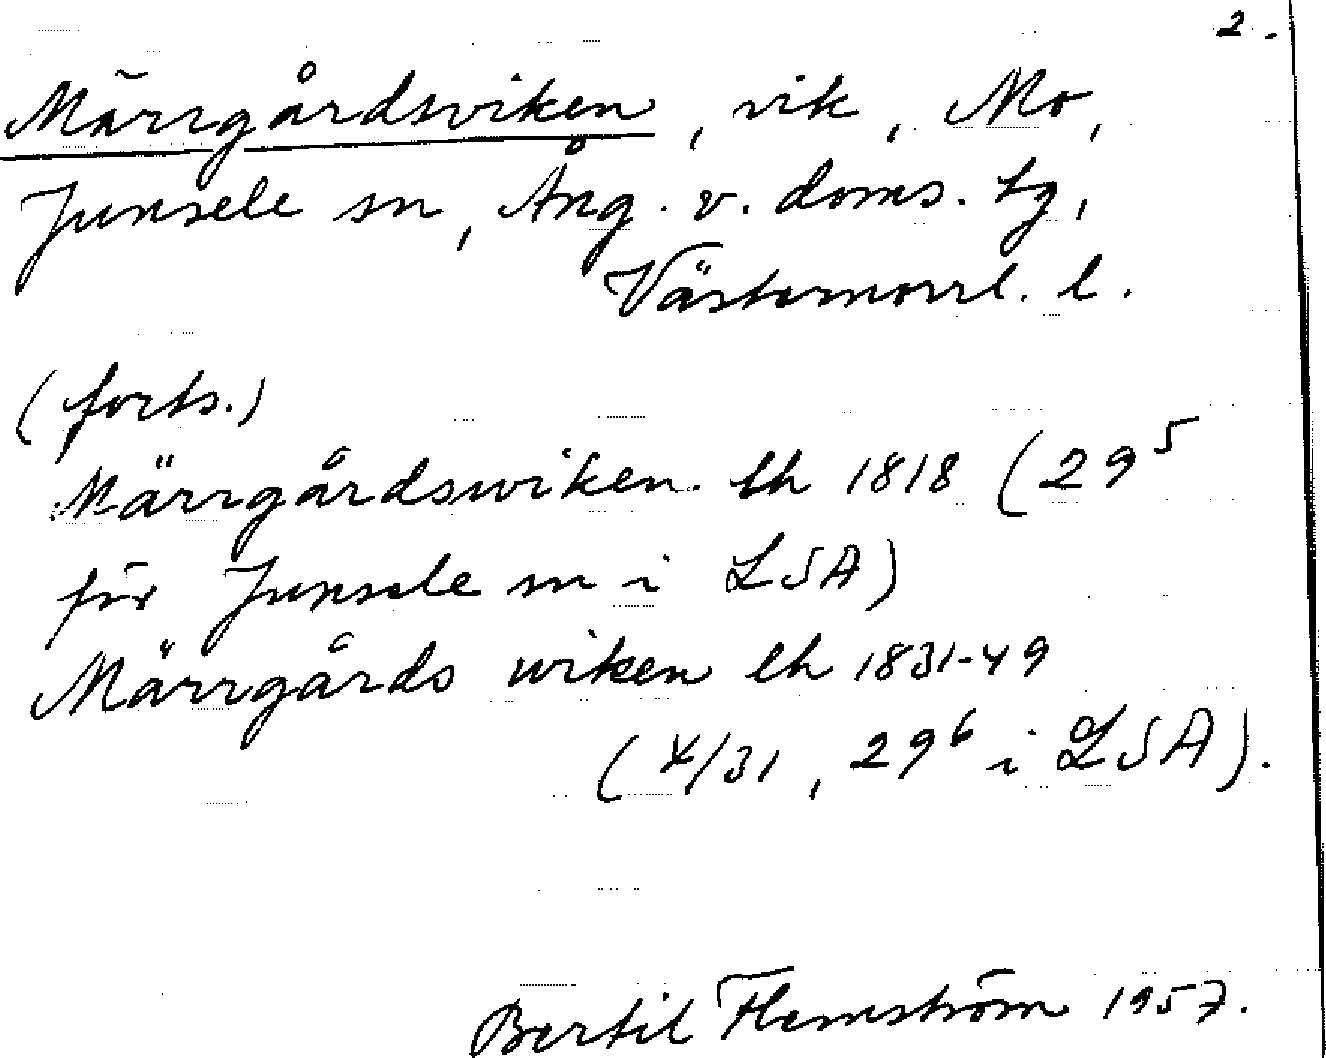 2.
Märrgårdsviken, vik, Mo,
Junsele sn, Ång. v. doms. tg,
Västernorrl. l.
(forts.)
Märrgårdswiken lh 1818 (29⁵
för Junsele sn i LSA)
Märrgårds wiken lh 1831-49
(4/31, 29⁶ i LSA).
Bertil Flemström 1957.